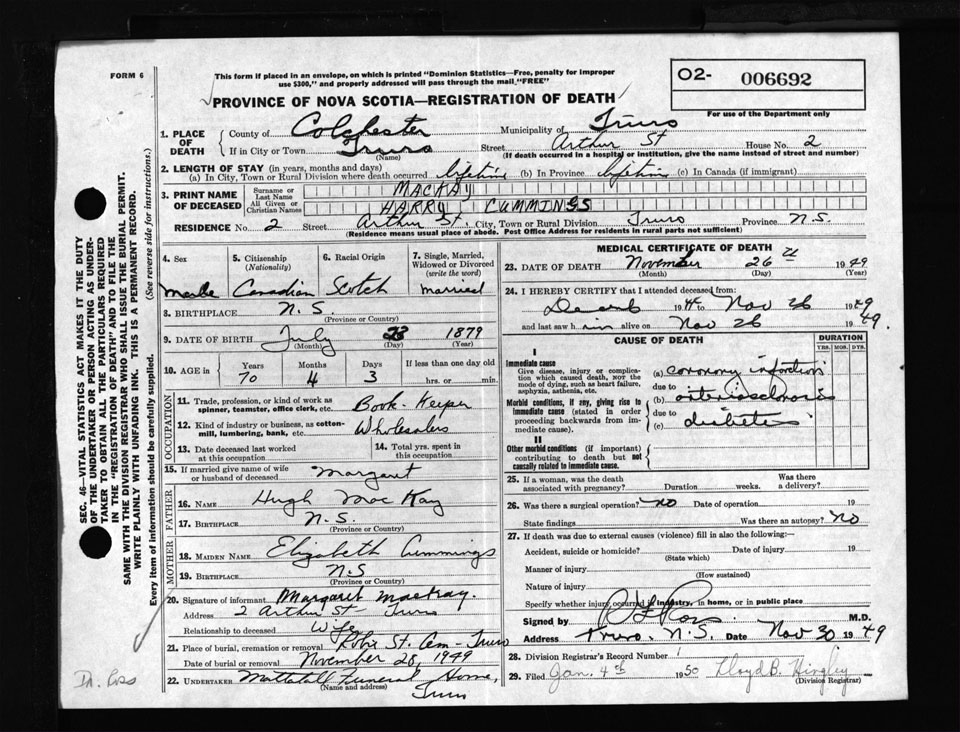 FORM 6
This form if placed in an envelope, on which is printed "Dominion Statistics—Free, penalty for improper
use $300," and properly addressed will pass through the mail "FREE"
O2- 006692
For use of the Department only
PROVINCE OF NOVA SCOTIA—REGISTRATION OF DEATH
1. PLACE OF DEATH
County of Colchester Municipality of Truro
If in City or Town Truro (Name) Street Arthur St House No. 2
(If death occurred in a hospital or institution, give the name instead of street and number)
2. LENGTH OF STAY (in years, months and days)
(a) In City, Town or Rural Division where death occurred lifetime (b) In Province lifetime (c) In Canada (if immigrant)
3. PRINT NAME OF DECEASED
Surname or Last Name MACKAY
All Given or Christian Names HARRY CUMMINGS
RESIDENCE No. 2 Street Arthur St. City, Town or Rural Division Truro Province N.S.
(Residence means usual place of abode. Post Office Address for residents in rural parts not sufficient)
4. Sex
male
5. Citizenship (Nationality)
Canadian
6. Racial Origin
Scotch
7. Single, Married, Widowed or Divorced (write the word)
married
8. BIRTHPLACE N.S.
(Province or Country)
9. DATE OF BIRTH July 23 1879
(Month) (Day) (Year)
10. AGE in Years Months Days If less than one day old
70 4 3 hrs. or min.
OCCUPATION
11. Trade, profession or kind of work as spinner, teamster, office clerk, etc. Book-Keeper
12. Kind of industry or business, as cotton-mill, lumbering, bank, etc. Wholesalers
13. Date deceased last worked at this occupation
14. Total yrs. spent in this occupation
15. If married give name of wife or husband of deceased Margaret
FATHER
16. NAME Hugh MacKay
17. BIRTHPLACE N.S.
(Province or Country)
MOTHER
18. MAIDEN NAME Elizabeth Cummings
19. BIRTHPLACE N.S
(Province or Country)
20. Signature of informant Margaret MacKay.
Address 2 Arthur St Truro
Relationship to deceased Wife
21. Place of burial, cremation or removal Robie St. Cem - Truro
Date of burial or removal November 28, 1949
22. UNDERTAKER Mattatall Funeral Home,
(Name and address) Truro
MEDICAL CERTIFICATE OF DEATH
23. DATE OF DEATH November 26th 1949
(Month) (Day) (Year)
24. I HEREBY CERTIFY that I attended deceased from:
to Nov 26 1949
and last saw him alive on Nov 26 1949.
CAUSE OF DEATH
DURATION
YRS. MOS. DYS.
I
Immediate cause
Give disease, injury or complication which caused death, not the mode of dying, such as heart failure, asphyxia, asthenia, etc.
(a) coronary infarction
due to
Morbid conditions, if any, giving rise to immediate cause (stated in order proceeding backwards from immediate cause).
(b) arteriosclerosis
due to
(c) diabetes
II
Other morbid conditions (if important) contributing to death but not causally related to immediate cause.
25. If a woman, was the death associated with pregnancy? Duration weeks. Was there a delivery?
26. Was there a surgical operation? no Date of operation 19
State findings Was there an autopsy? no
27. If death was due to external causes (violence) fill in also the following:
Accident, suicide or homicide? Date of injury 19
(State which)
Manner of injury
(How sustained)
Nature of injury
Specify whether injury occurred in industry, in home, or in public place
Signed by M.D.
Address Truro. N.S. Date Nov 30 1949
28. Division Registrar's Record Number 1
29. Filed Jan. 4th 1950 Lloyd B. Hingley
(Division Registrar)
SEC. 46—VITAL STATISTICS ACT MAKES IT THE DUTY
OF THE UNDERTAKER OR PERSON ACTING AS UNDER-
TAKER TO OBTAIN ALL THE PARTICULARS REQUIRED
IN THE "REGISTRATION OF DEATH" AND TO FILE THE
SAME WITH THE DIVISION REGISTRAR WHO SHALL ISSUE THE BURIAL PERMIT.
WRITE PLAINLY WITH UNFADING INK. THIS IS A PERMANENT RECORD.
Every item of information should be carefully supplied. (See reverse side for instructions.)
Dr. Ross